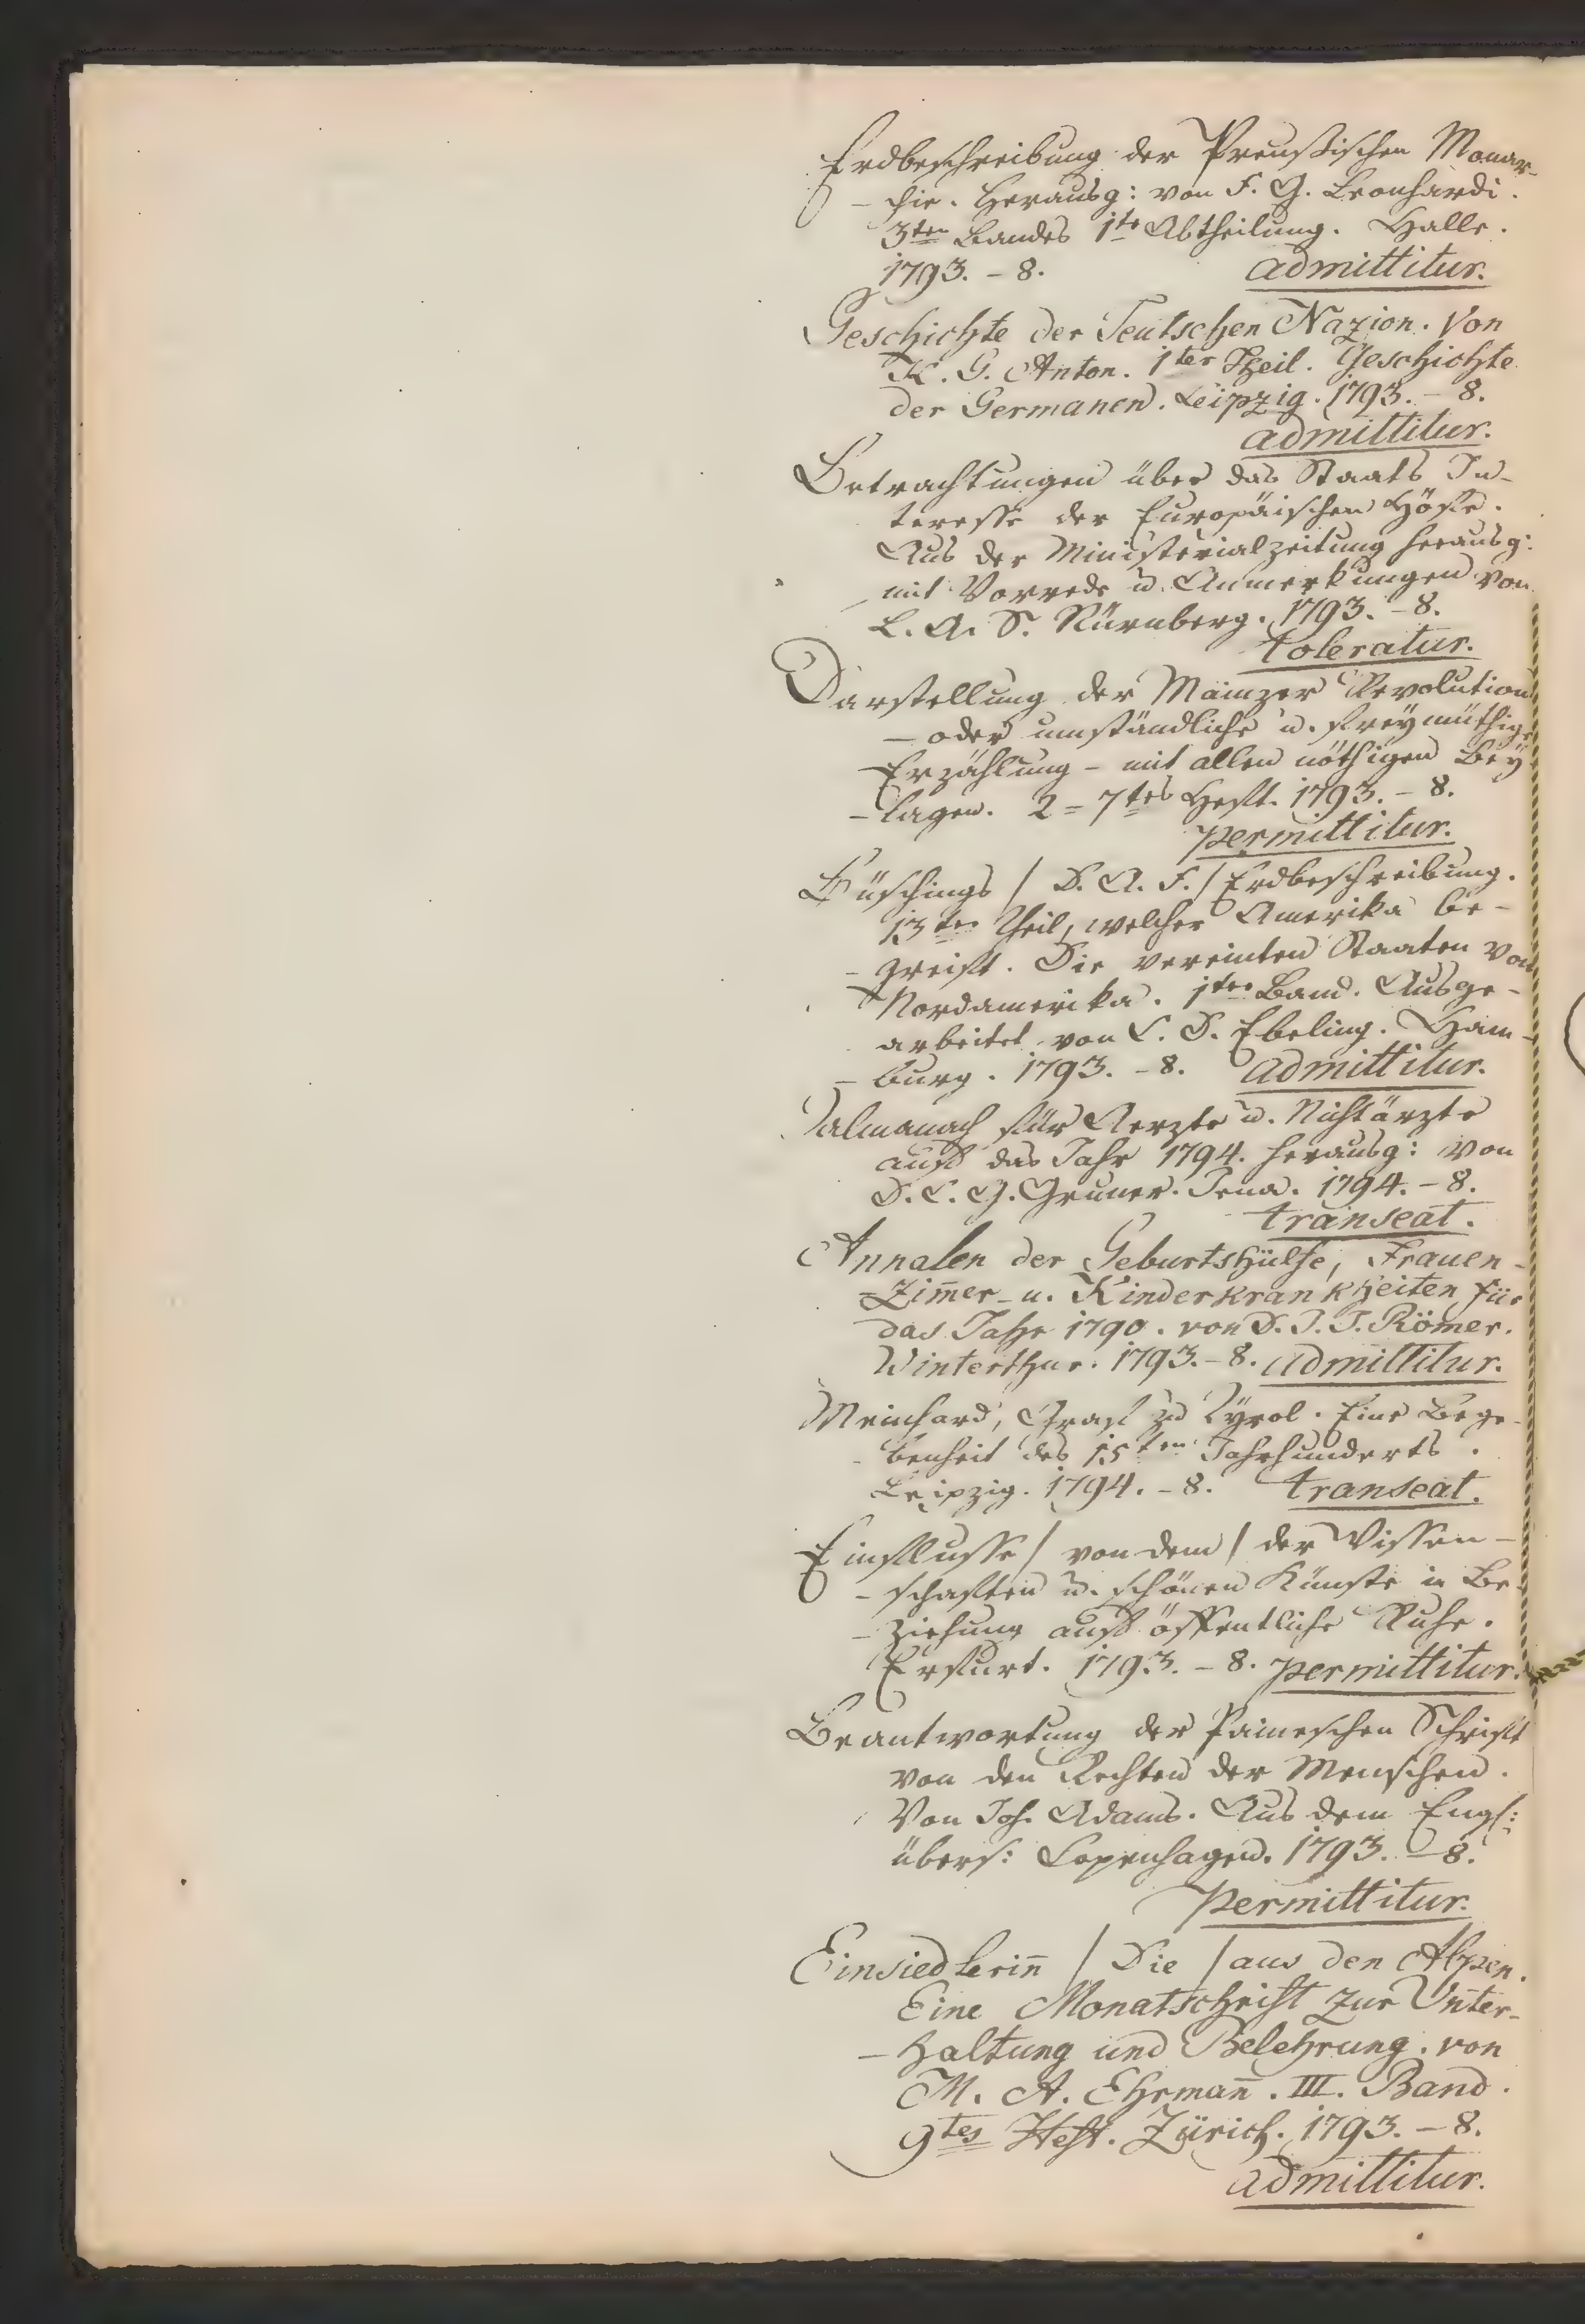 Erdbeschreibung der Preußischen Monar-
- chie. Herausg: von F. G. Leonhardi.
3ten Bandes 1te Abtheilung. Halle.
1793. - 8. admittitur.
Geschichte der Teutschen Nazion. Von
K. G. Anton. 1ter Theil. Geschichte
der Germanen. Leipzig. 1793. - 8.
admittitur.
Betrachtungen über das Staats In-
teresse der Europäischen Höfe.
Aus der Ministerialzeitung herausg:
mit Vorrede u. Anmerkungen von
L. A. S. Nürnberg. 1793. - 8.
toleratur.
Darstellung der Mainzer Revolution
- oder umständliche u. freymüthige
Erzählung - mit allen nöthigen Bey
- lagen. 2 = 7tes Heft. 1793. - 8.
permittitur.
Büschings / D. A. F. / Erdbeschreibung.
13ter Theil, welcher Amerika be-
- greift. Die vereinten Staaten von
Nordamerika. 1ter Band. Ausge-
arbeitet von C. D. Ebeling. Ham-
- burg. 1793. - 8. admittitur.
Almanach für Aerzte u. Nichtärzte
auf das Jahr 1794. herausg: von
D. C. G. Gruner. Jena. 1794. - 8.
transeat.
Annalen der Geburtshülfe, Frauen-
=Zim̄er- u. Kinderkrankheiten für
das Jahr 1790. von D. J. J. Römer.
Winterthur. 1793. - 8. admittitur.
Meinhard, Graf zu Tyrol. Eine Bege-
- benheit des 15ten Jahrhunderts.
Leipzig. 1794. - 8. transeat.
Einflusse / von dem / der Wissen-
- schaften u. schönen Künste in Be-
- ziehung auf öffentliche Ruhe.
Erfurt. 1793. - 8. permittitur.
Beantwortung der Paineschen Schrift
von den Rechten der Menschen.
Von Joh. Adams. Aus dem Engl:
übers: Copenhagen. 1793. - 8.
permittitur.
Einsiedlerin̄ / Die / aus den Alpen.
Eine Monatschrift zur Unter-
- haltung und Belehrung. von
M. A. Ehrman̄. III. Band.
9tes Heft. Zürich. 1793. - 8.
admittitur.